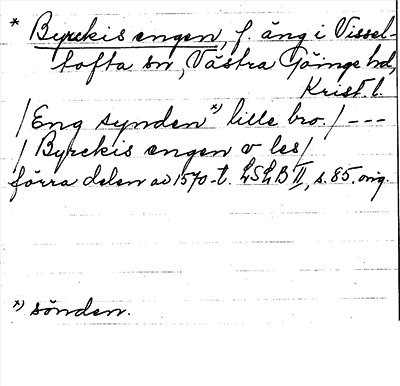 * Byrckis engen, f. äng i Vissel-
tofta sn, Västra Göinge hd,
Krist. l.
/Eng synden *) lille bro./ ---
/Byrckis engen v les/
förra delen av 1570-t. LSLB II, s. 85. orig.
*) sönden.